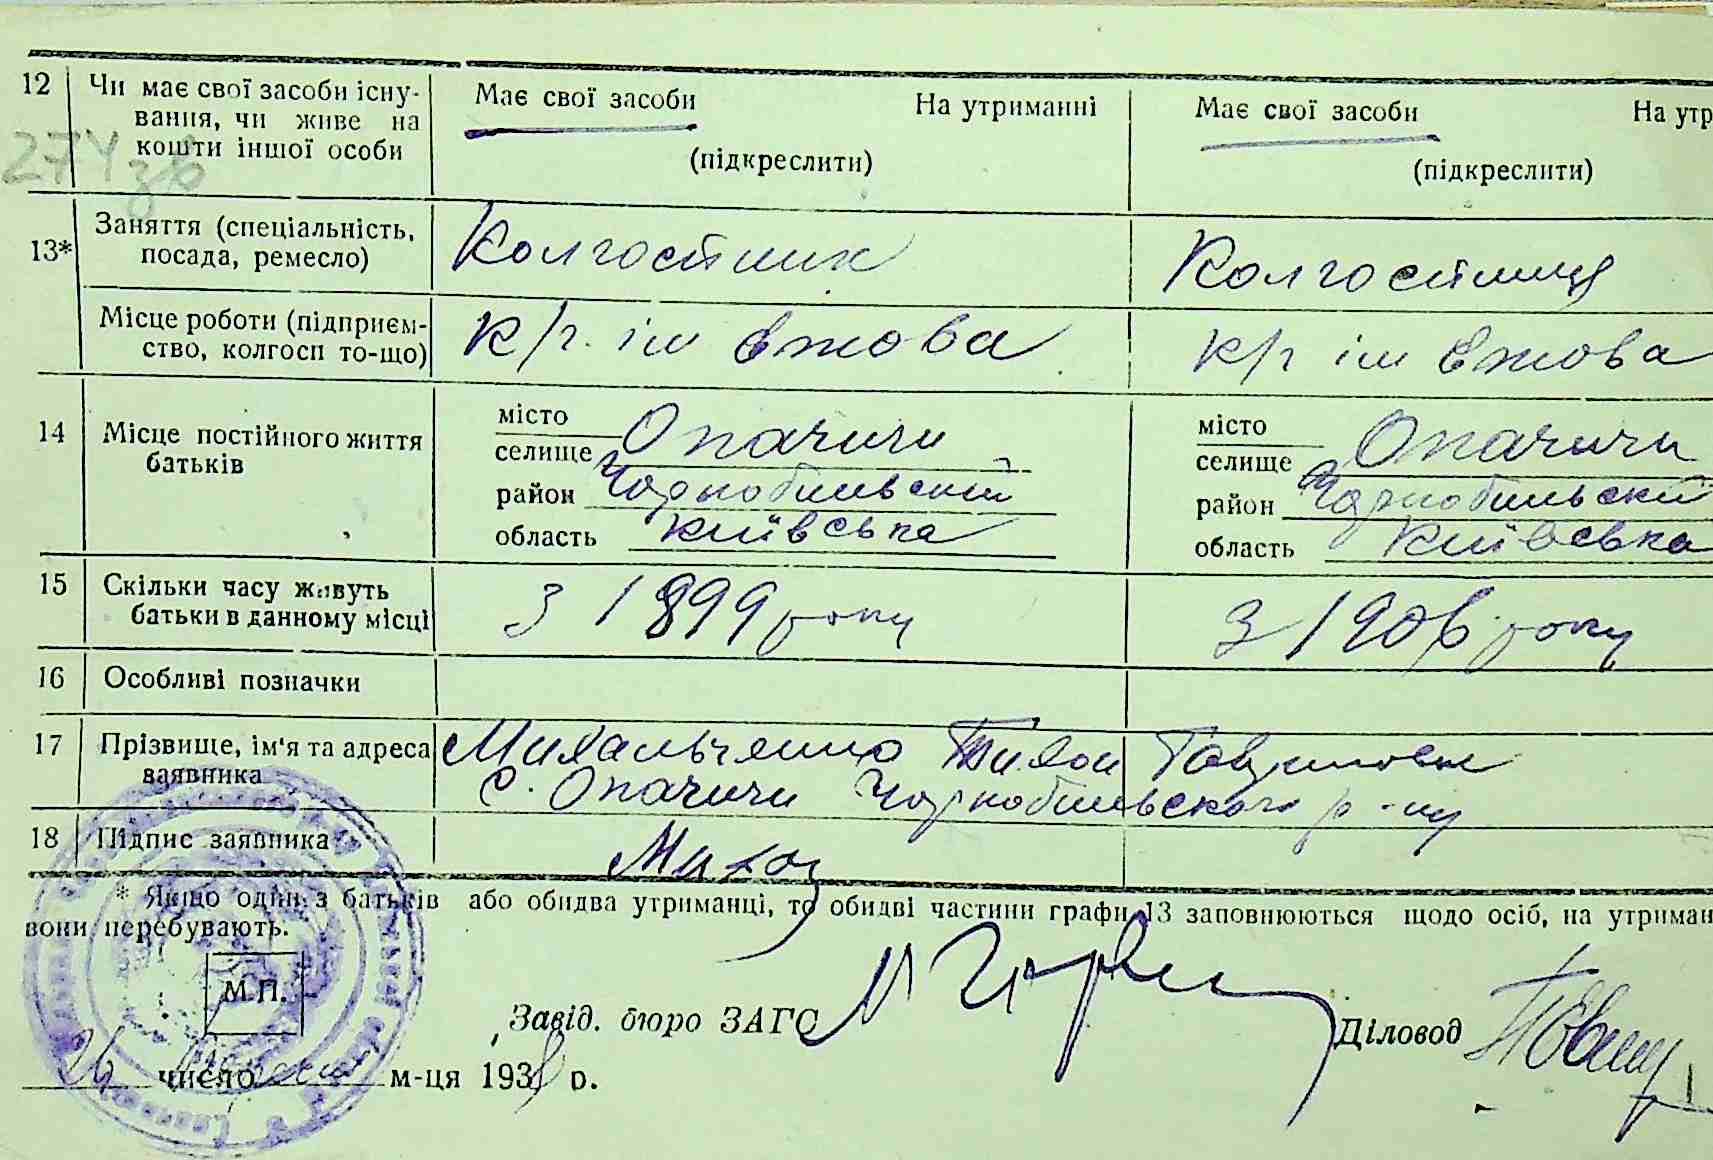 12 Чи має свої засоби існу- Має свої засоби На утриманні Має свої засоби На утр
вання, чи живе на
кошти іншої особи (підкреслити) (підкреслити)
274 зв
13* Заняття (спеціальність, Колгоспник Колгоспниця
посада, ремесло)
Місце роботи (підприєм- к/г. ім Єжова к/г ім Єжова
ство, колгосп то-що)
14 Місце постійного життя місто Опачичи місто Опачичи
батьків селище селище
район Чорнобильский район Чорнобильский
область Київська область Київська
15 Скільки часу живуть З 1899 року З 1906 року
батьки в данному місці
16 Особливі позначки
17 Прізвище, ім'я та адреса Михальченко Тихон
заявника с. Опачичи Чорнобильского р-ну
18 Підпис заявника
* Якщо один з батьків або обидва утриманці, то обидві частини графи 13 заповнюються щодо осіб, на утриман
вони перебувають.
М.П.
Завід. бюро ЗАГС Діловод
26 число м-ця 1938 р.